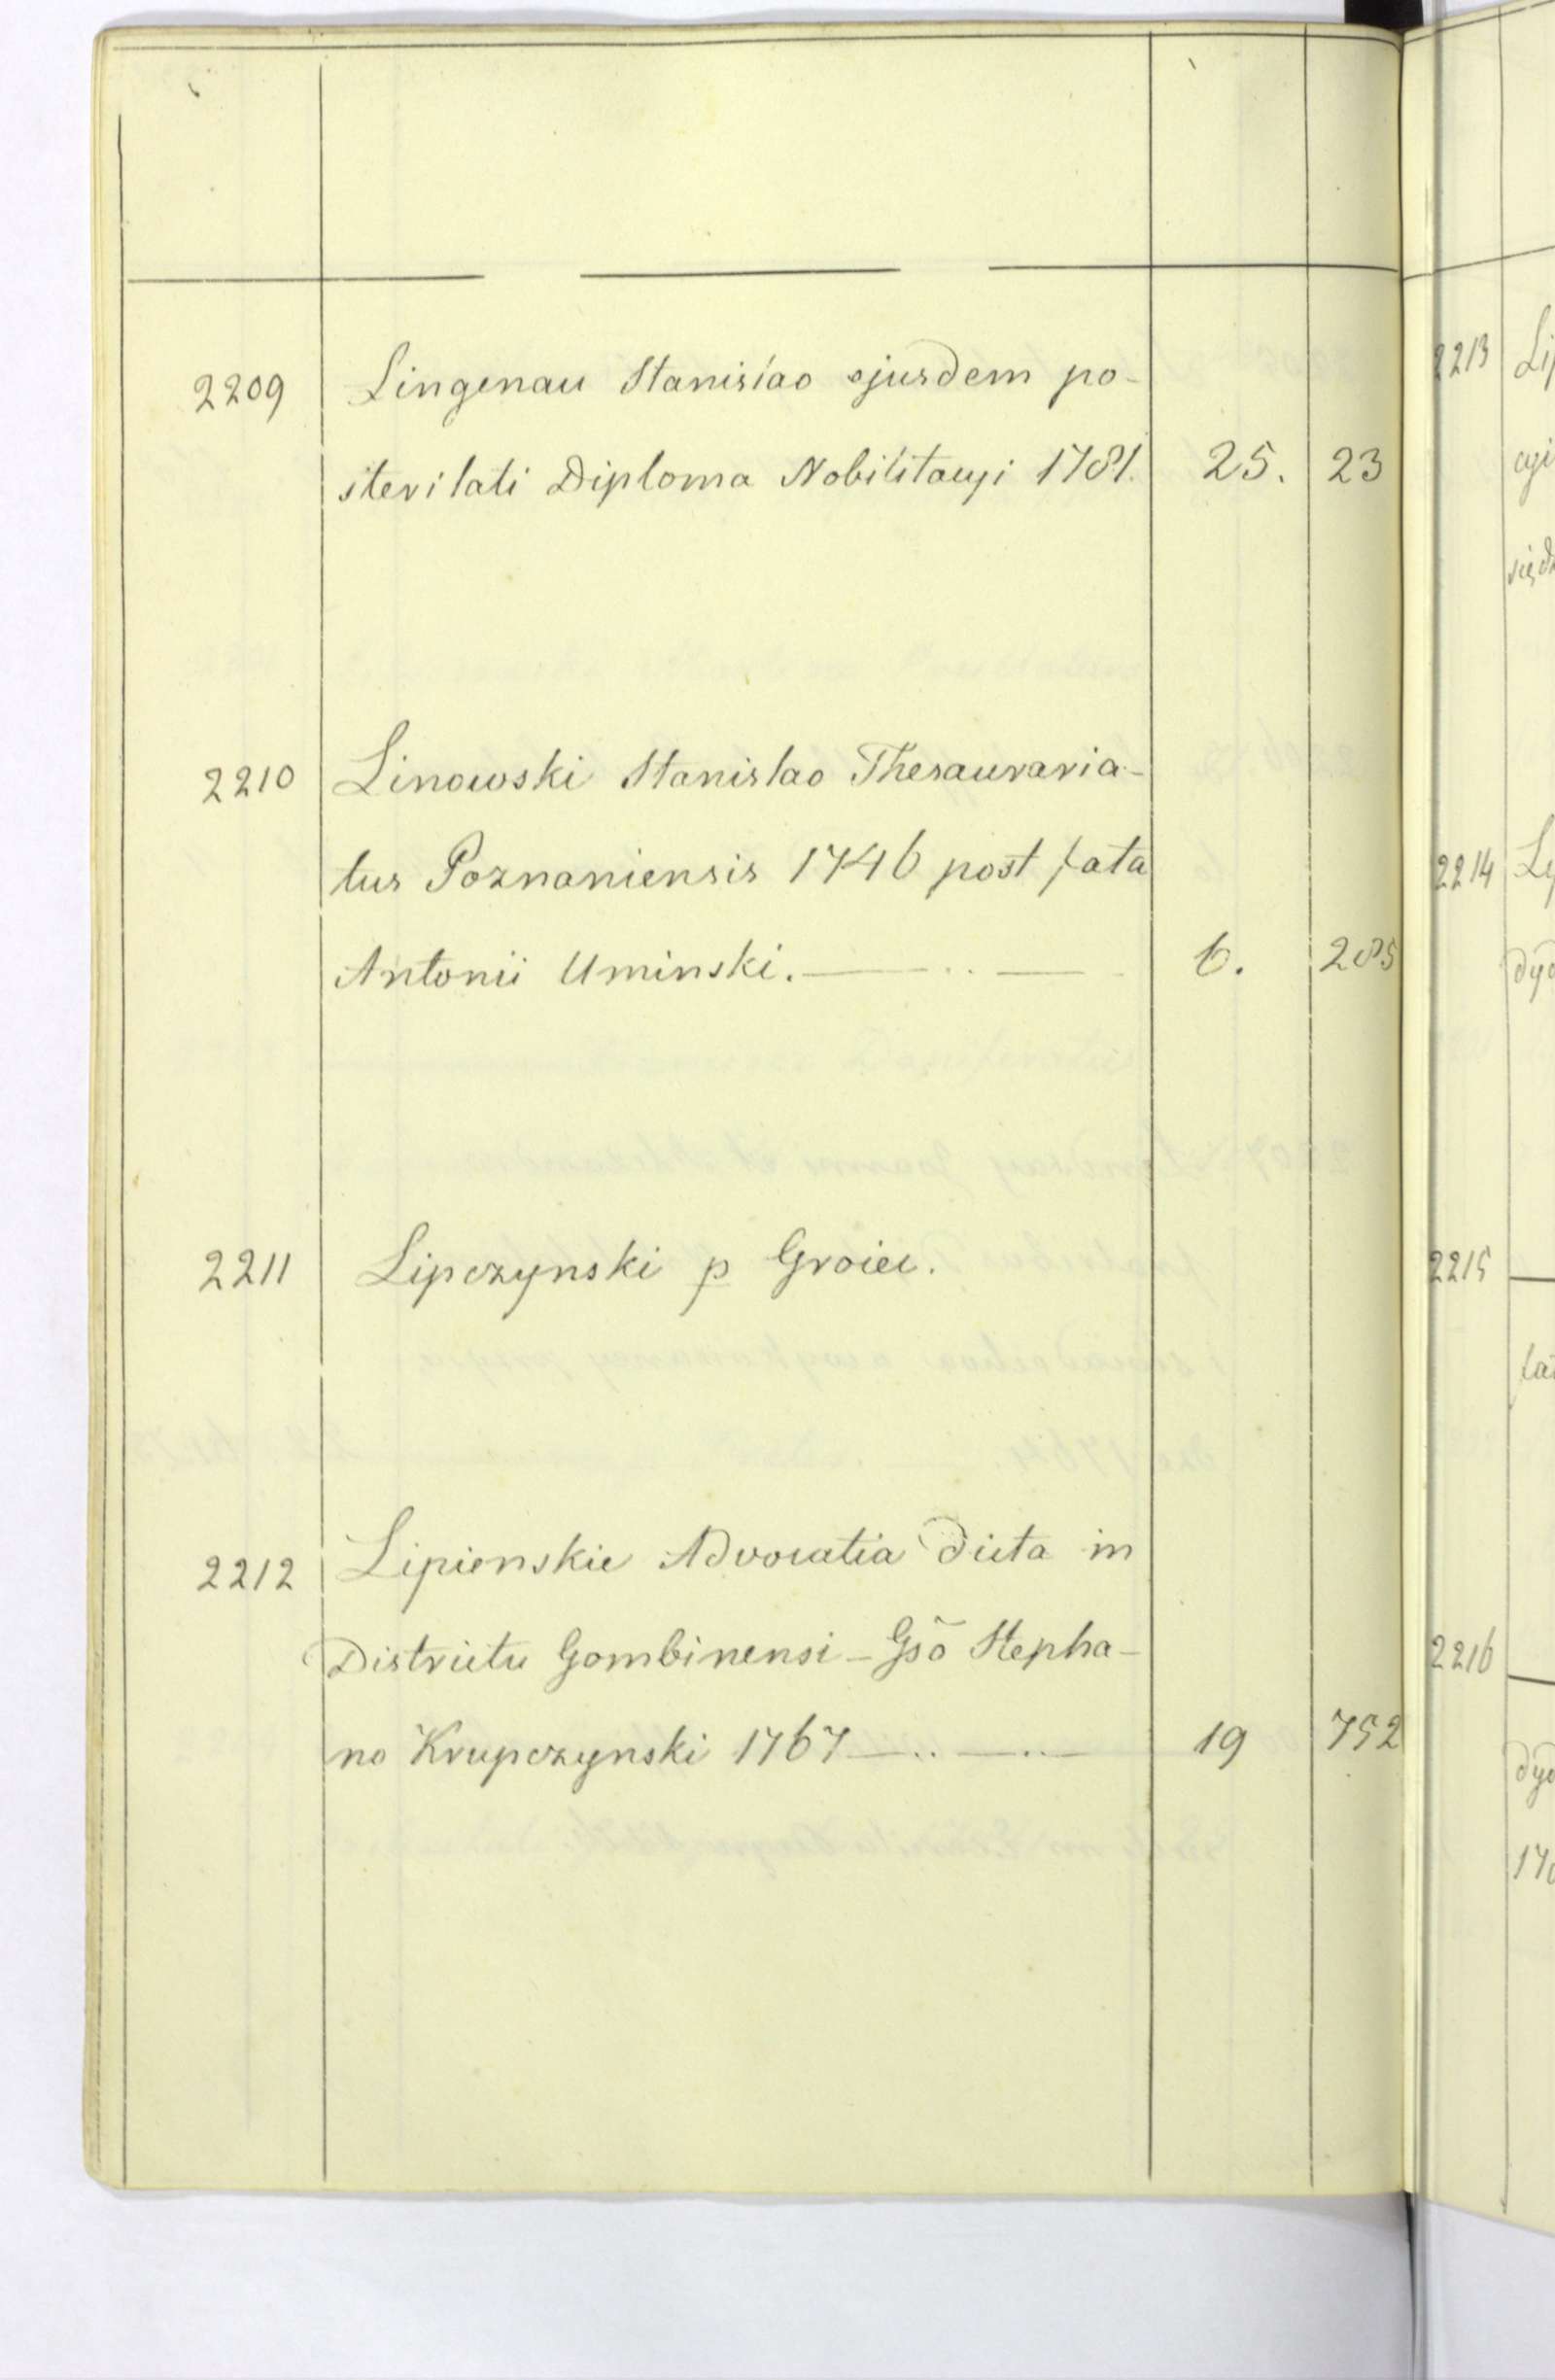 2209 Lingenau Stanislao ejusdem po-
steritati Diploma Nobilitacyi 1781. 25. 23
2210 Linowski Stanislao Thesauraria-
tus Poznaniensis 1746 post fata
Antonii Uminski. — .. — 6. 285
2211 Lipczynski p Groiec.
2212 Lipienskie Advocatia dicta in
Districtu Gombinensi - Gsō Stepha-
no Krupczynski 1767 — .. — .. — 19 752
2213 Lip
cyi
2214
dyc
2215
2216
dyc